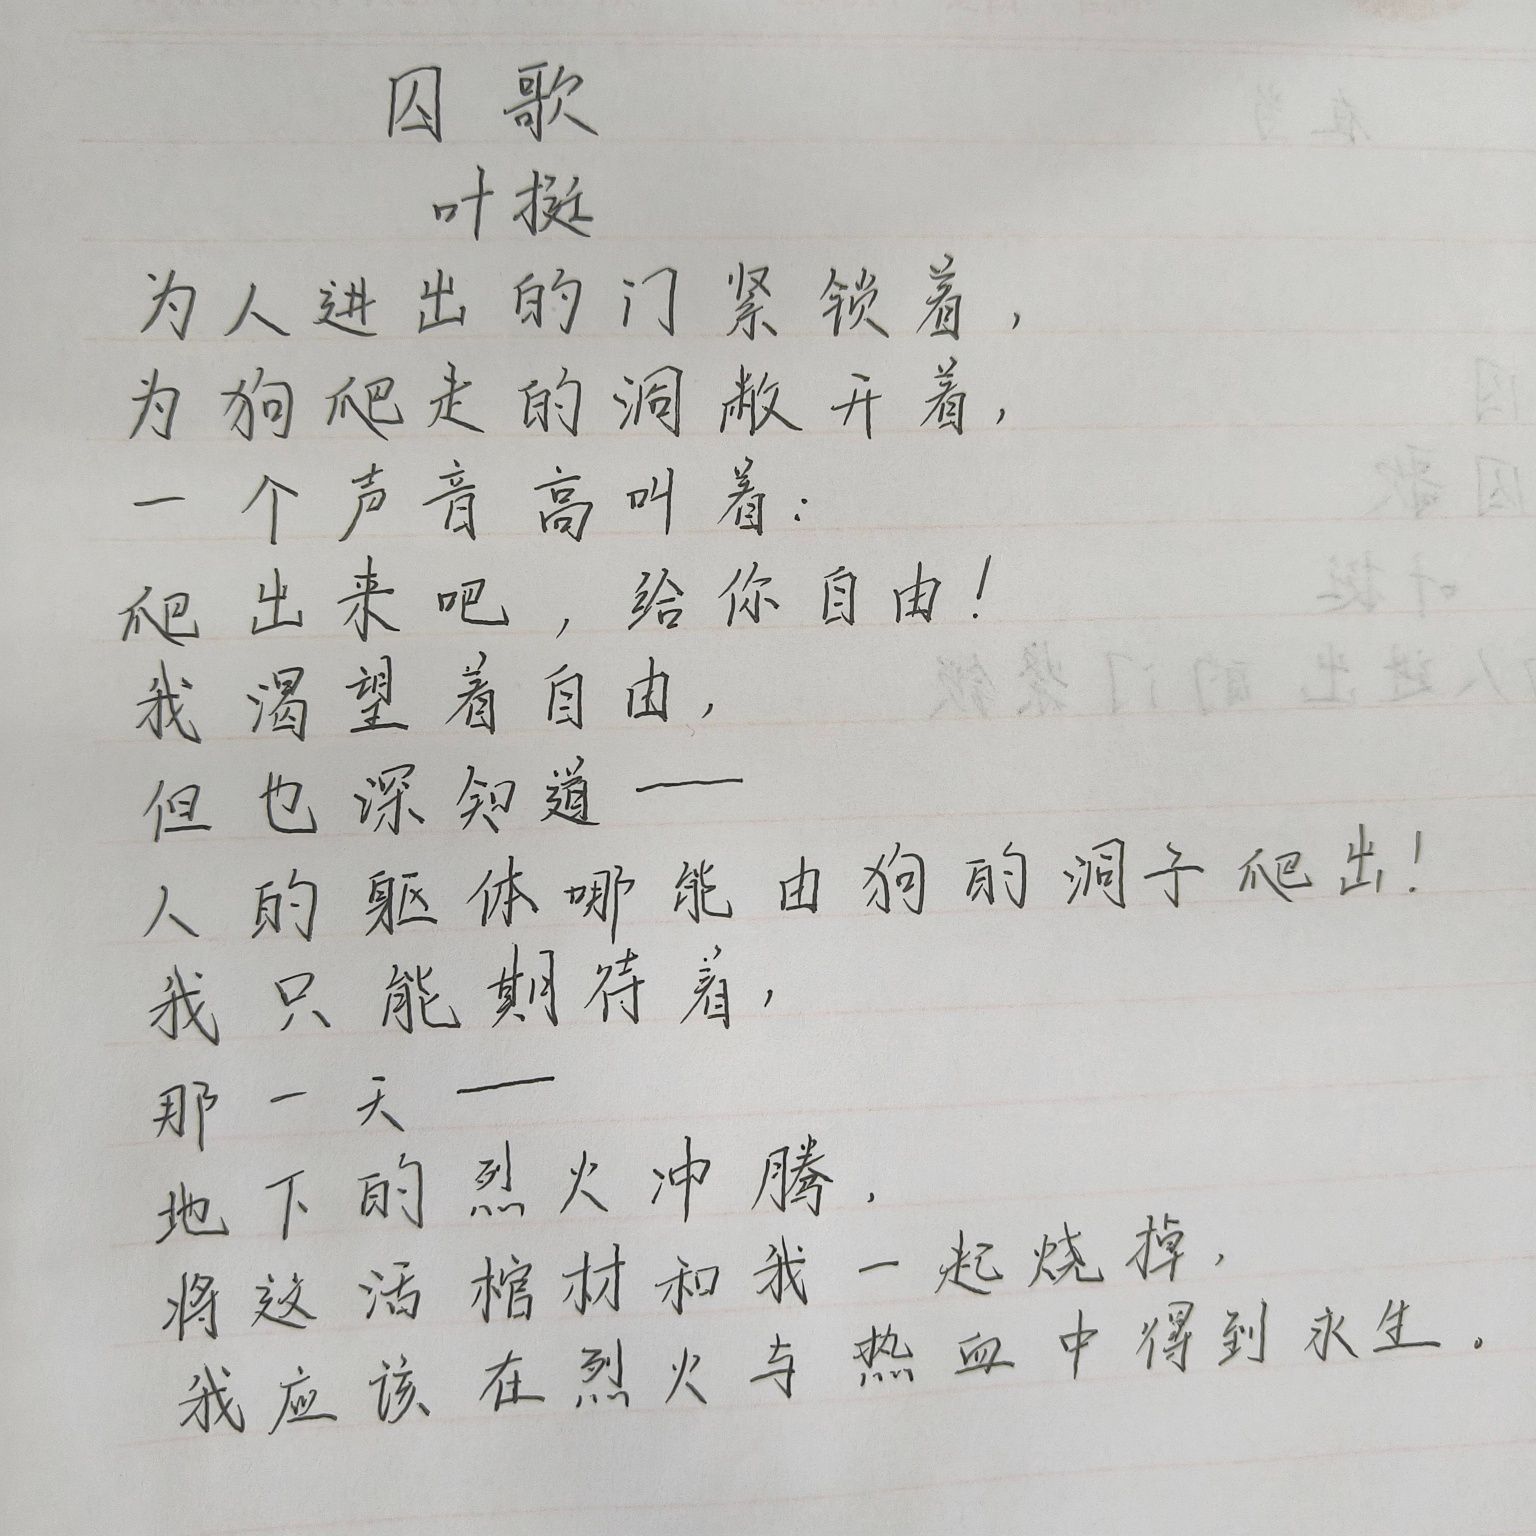 囚歌
叶挺
为人进出的门紧锁着，
为狗爬走的洞敞开着，
一个声音高叫着：
爬出来吧，给你自由！
我渴望着自由，
但也深知道——
人的躯体哪能由狗的洞子爬出！
我只能期待着，
那一天——
地下的烈火冲腾，
将这活棺材和我一起烧掉，
我应该在烈火与热血中得到永生。